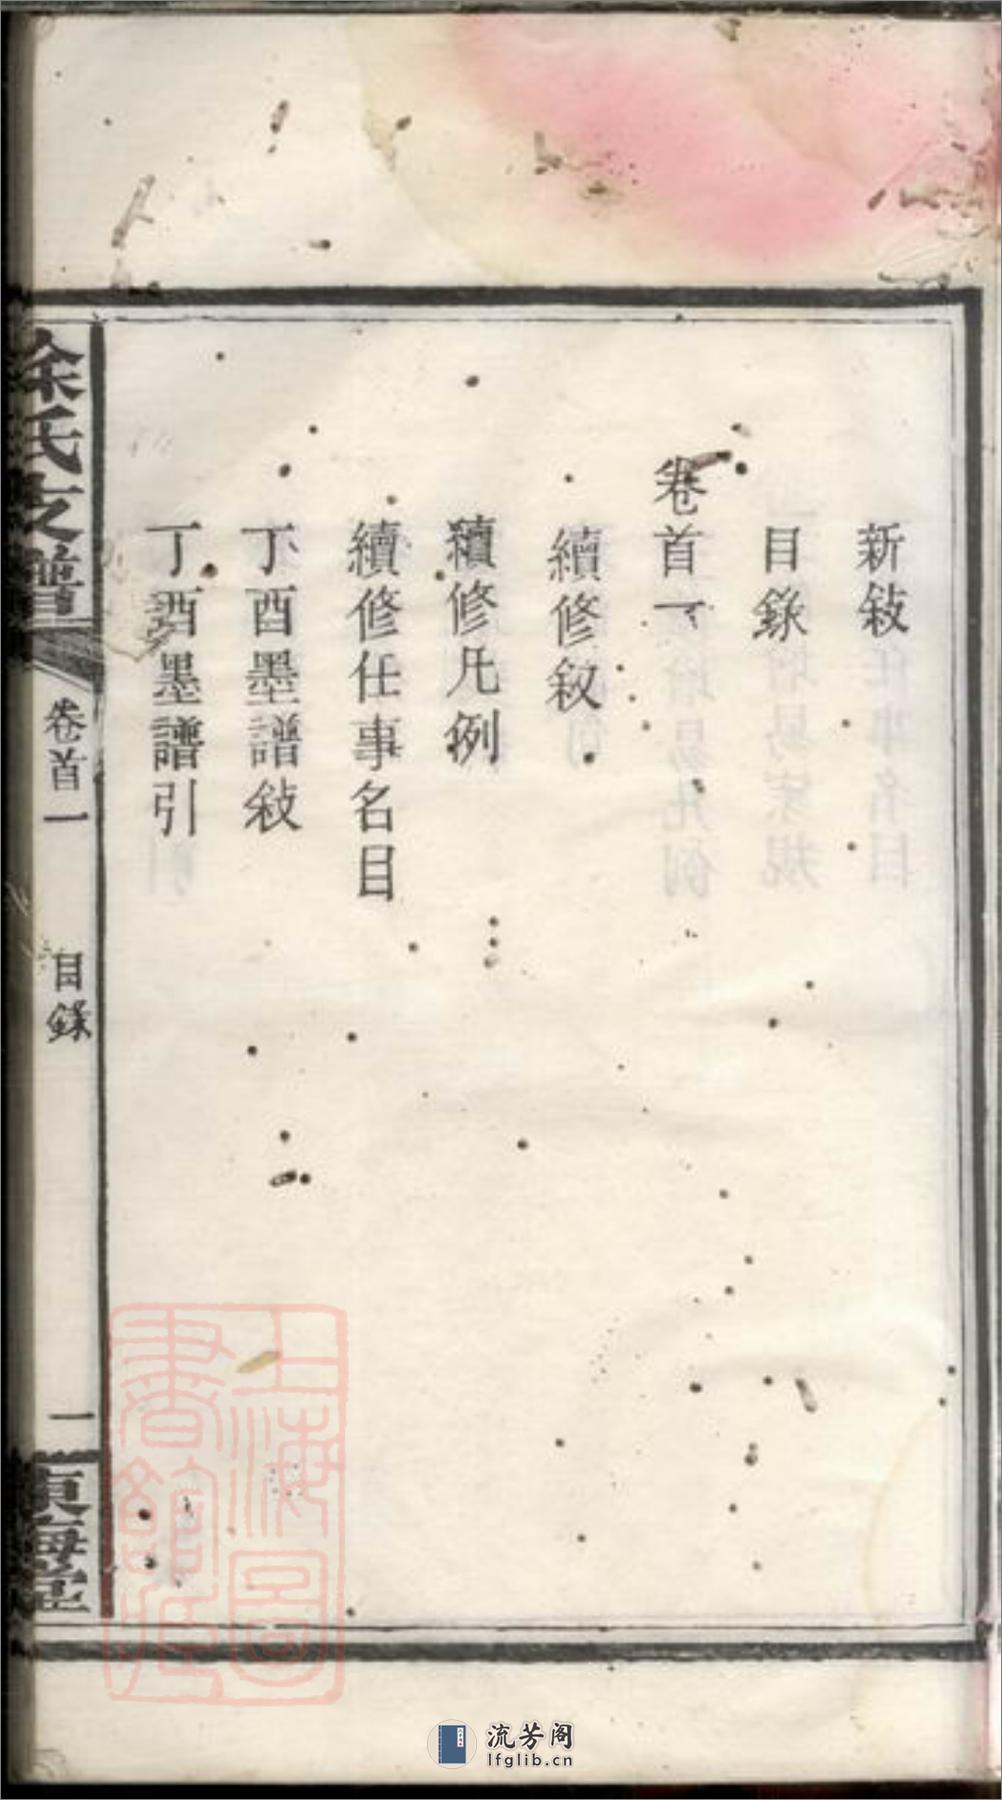 新敍
目錄
卷首一
續修敘
續修凡例
續修任事名目
丁酉墨譜敍
丁酉墨譜引
徐氏支譜
卷首一
目錄
一
東海堂
上海圖
書館藏
流芳阁
lfglib.cn